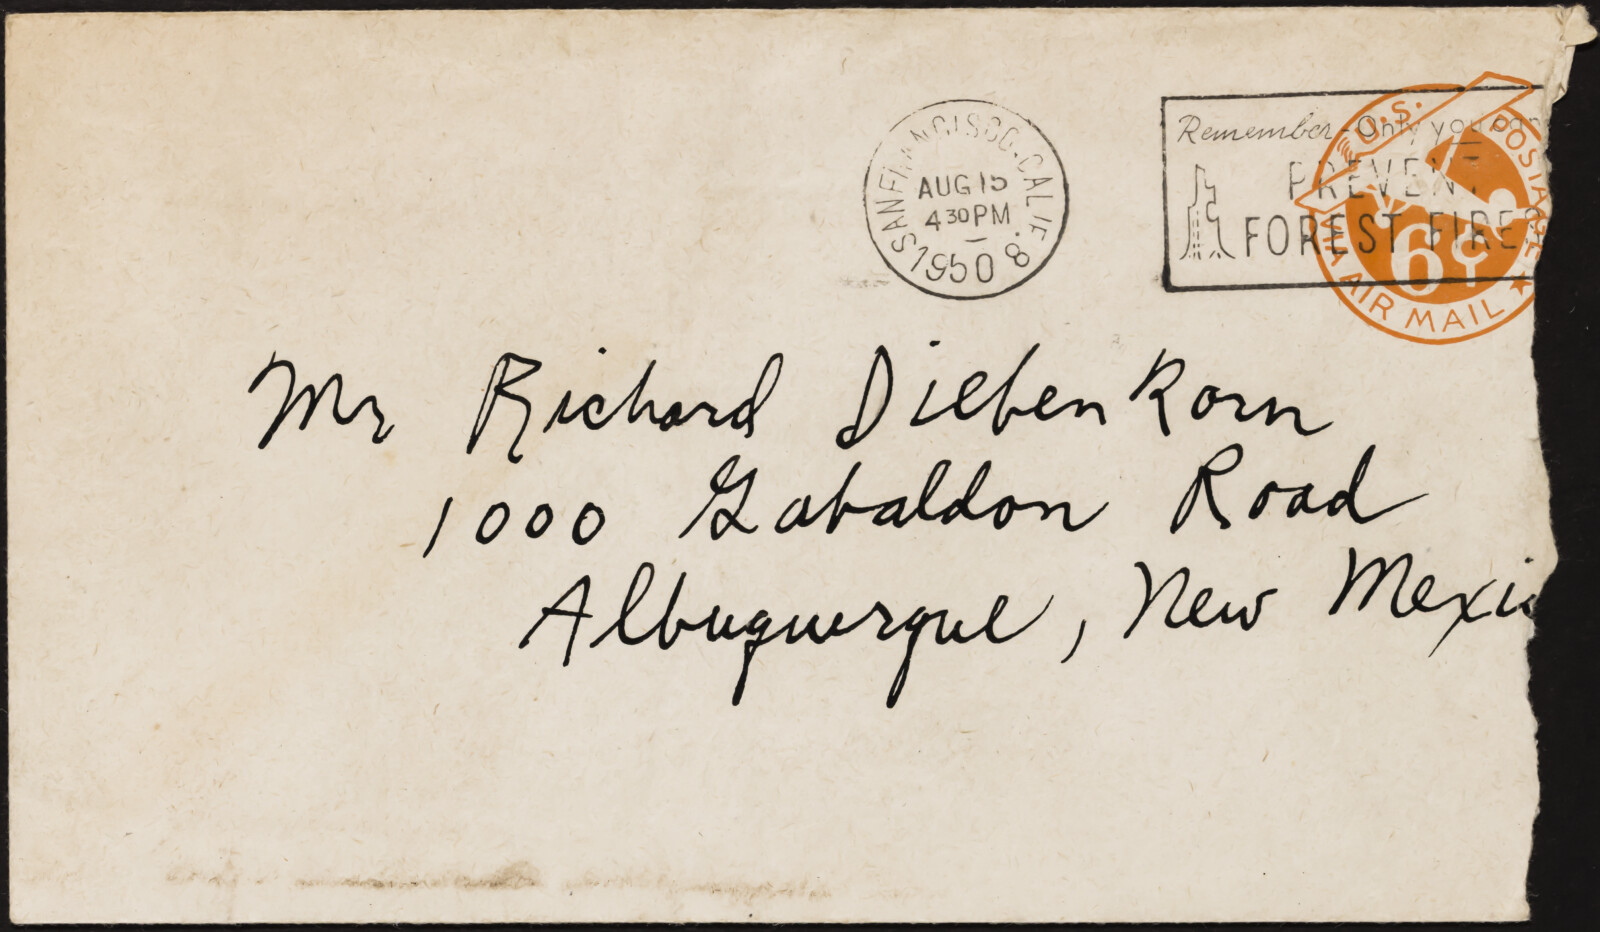 SAN FRANCISCO. CALIF. 8
AUG 15
4 30 PM
1950
Remember - Only you can
PREVENT
FOREST FIRES
U.S. POSTAGE
VIA AIR MAIL
6¢
Mr Richard Diebenkorn
1000 Gabaldon Road
Albuquerque, New Mexi